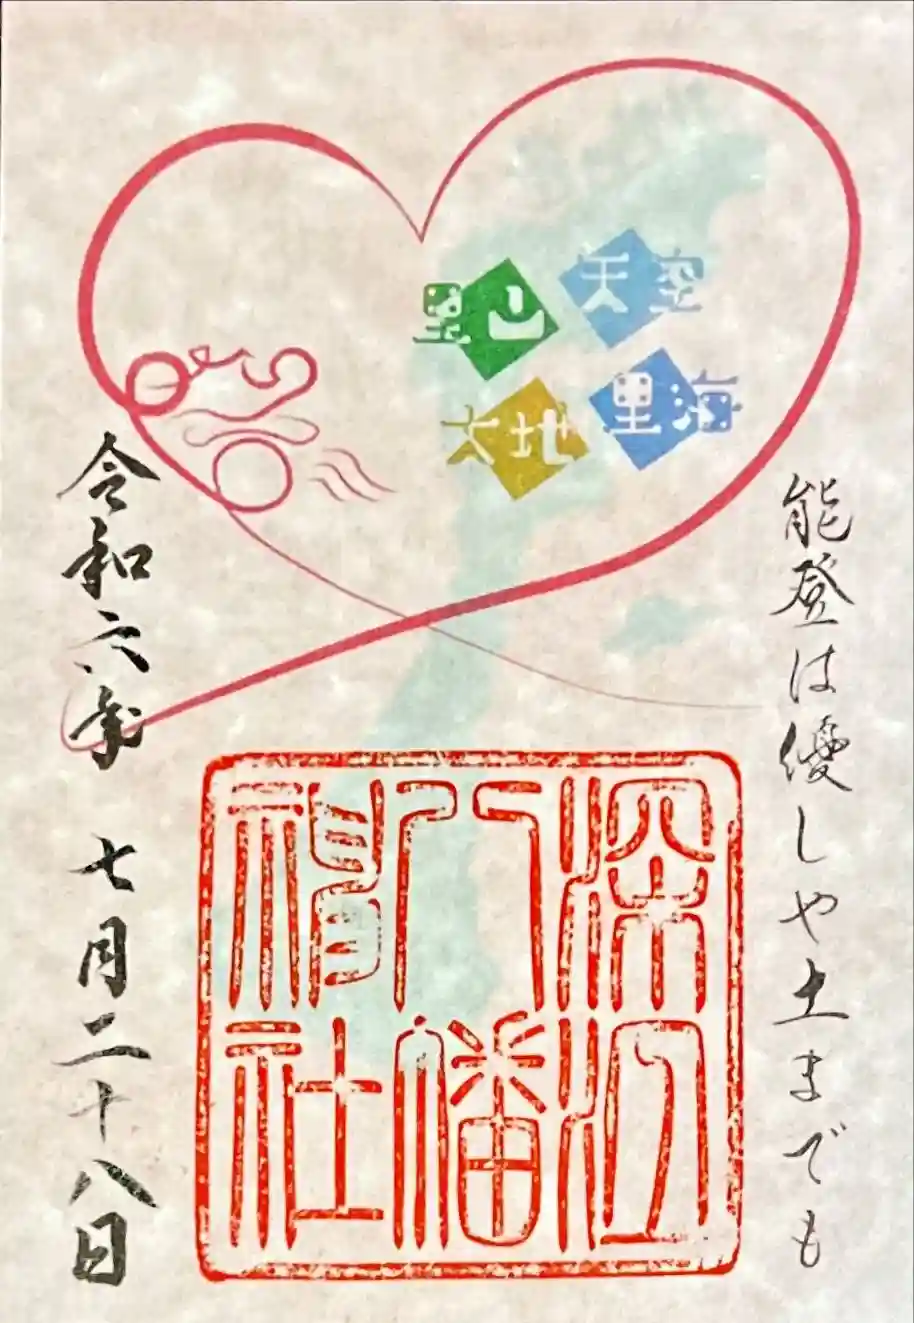 里山
天空
大地
里海
能登は優しや土までも
深江
八幡
神社
令和六年 七月二十八日